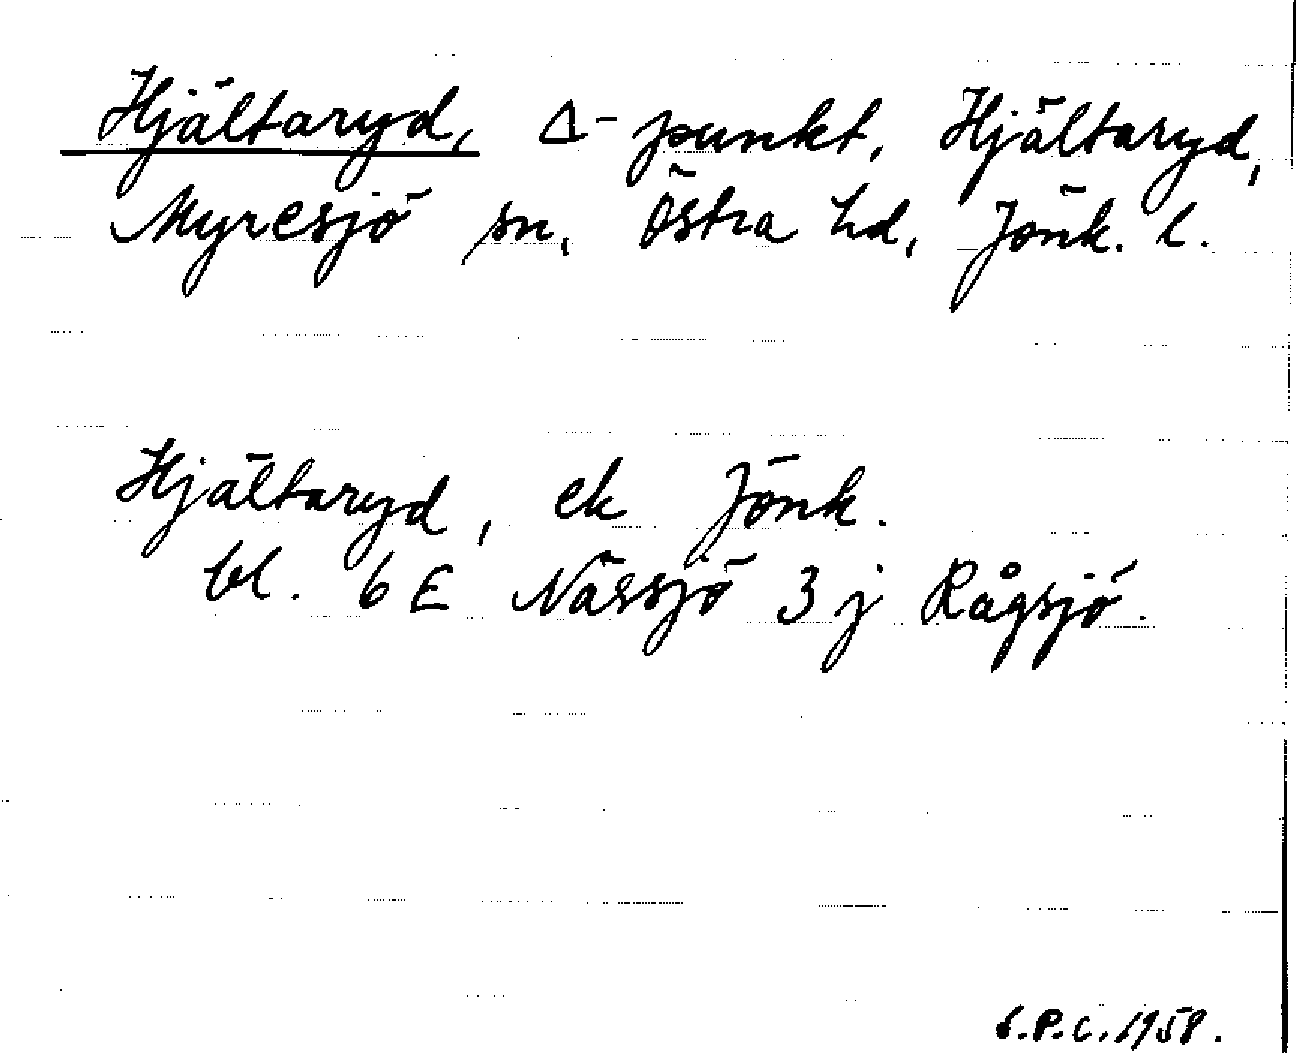 Hjältaryd, Δ-punkt, Hjältaryd,
Myresjö sn, Östra hd, Jönk. l.
Hjältaryd, ek Jönk.
bl. 6 E Nässjö 3 j Rågsjö.
G.P.C. 1958.